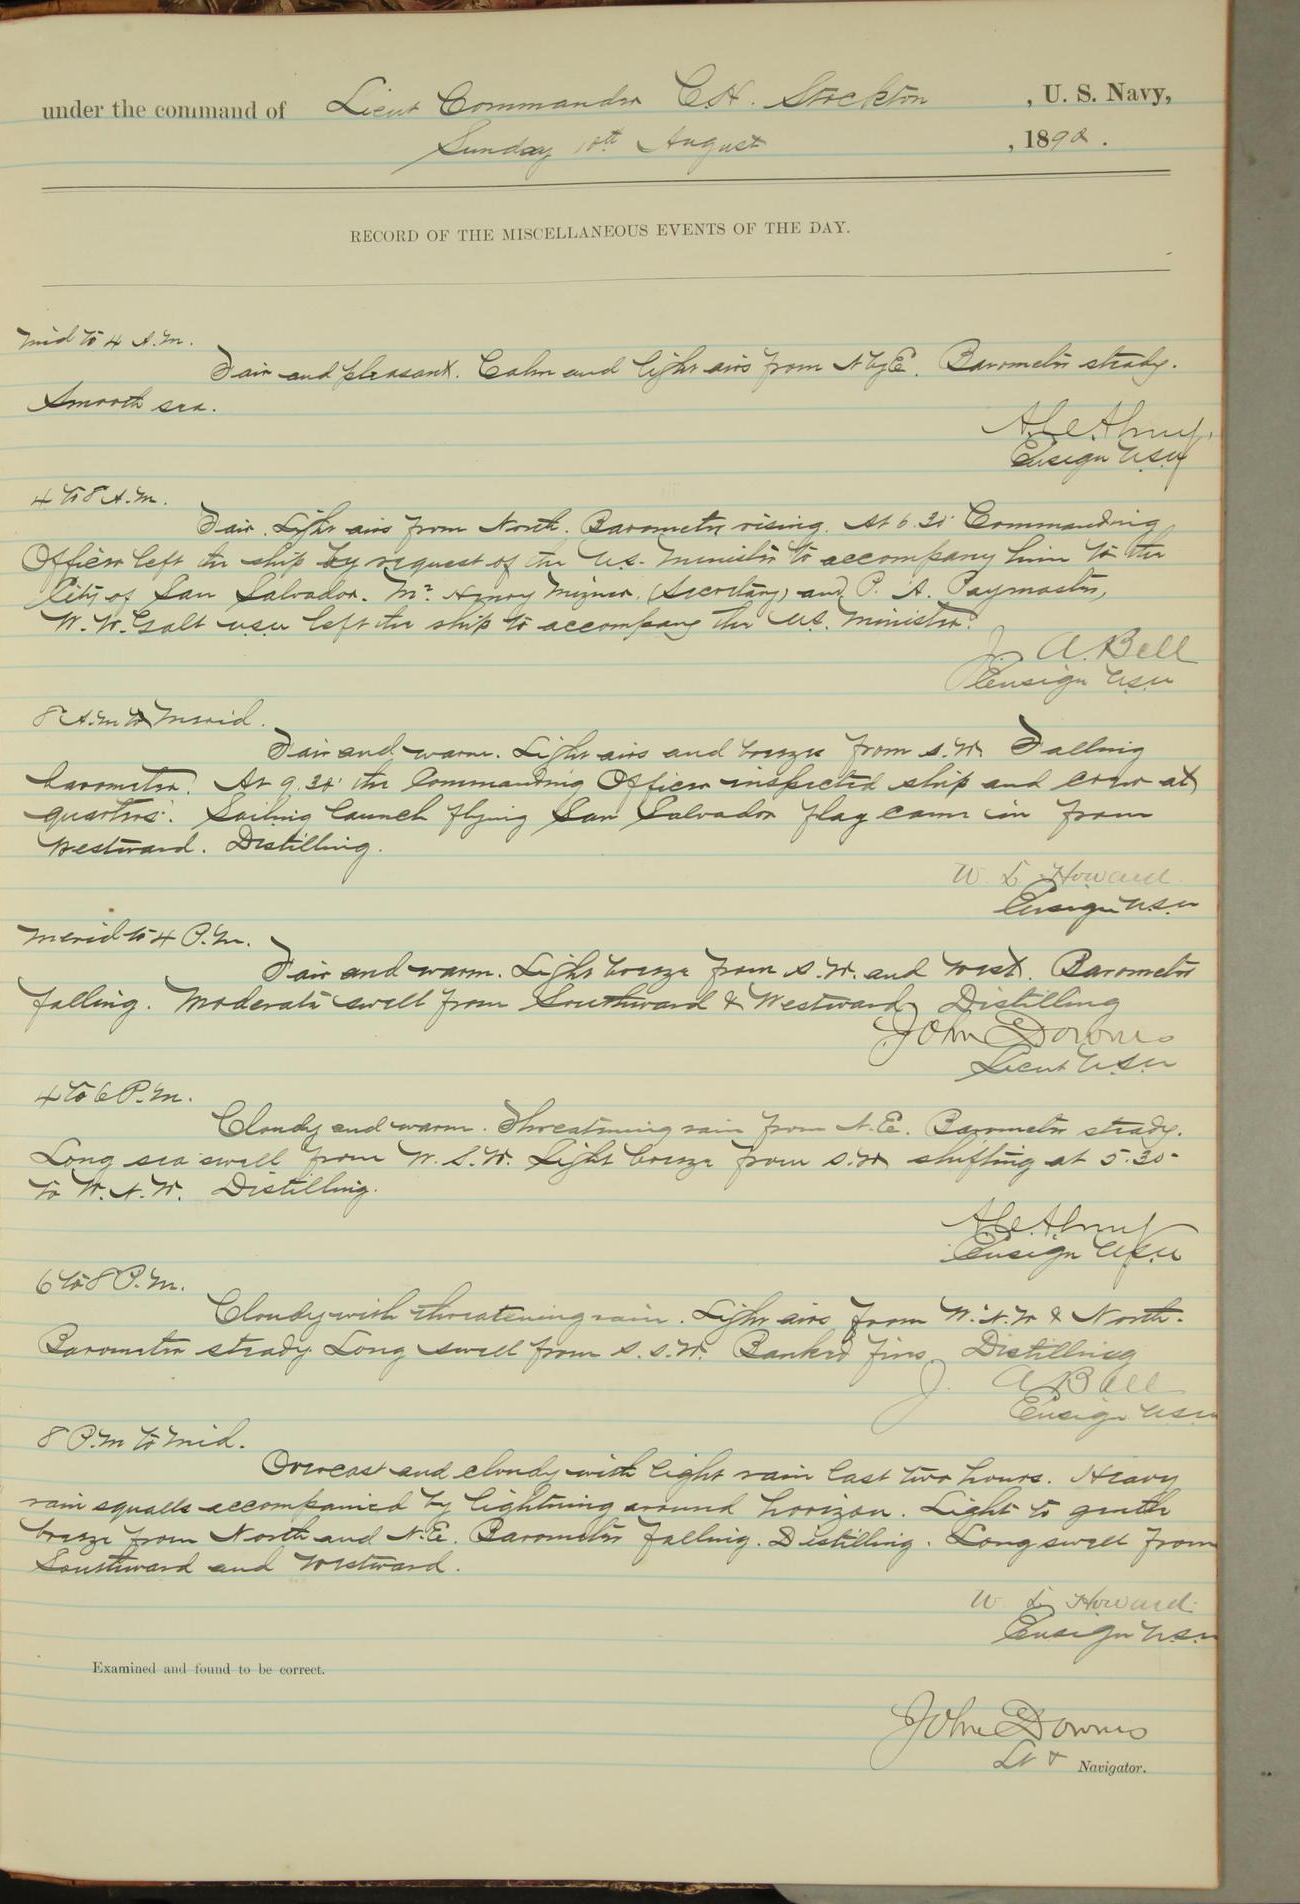 under the command of Lieut Commander C.H. Stockton , U. S. Navy,
Sunday 10th August , 1890 .
RECORD OF THE MISCELLANEOUS EVENTS OF THE DAY.
Mid to 4 A.M.
Fair and pleasant. Calm and light airs from N by E. Barometer steady.
Smooth sea.
Ensign USN
4 to 8 A.M.
Fair. Light airs from North. Barometer rising. At 6.30 Commanding
Officer left the ship by request of the U.S. Minister to accompany him to the
City of San Salvador. Mr. Henry Mizner (Secretary) and P. A. Paymaster,
W. W. Galt USN left the ship to accompany the U.S. Minister.
J. A. Bell
Ensign USN
8 A.M to Merid.
Fair and warm. Light airs and breeze from S.W. Falling
barometer. At 9.30 the Commanding Officer inspected ship and crew at
quarters. Sailing launch flying San Salvador flag came in from
Westward. Distilling.
W. L. Howard
Ensign USN
Merid to 4 P.M.
Fair and warm. Light breeze from S.W. and West. Barometer
falling. Moderate swell from Southward & Westward Distilling
John Downes
Lieut USN
4 to 6 P.M.
Cloudy and warm. Threatening rain from N.E. Barometer steady.
Long sea swell from W.S.W. Light breeze from S.W. shifting at 5.30
to W.N.W. Distilling.
Ensign USN
6 to 8 P.M.
Cloudy with threatening rain. Light airs from W.N.W & North.
Barometer steady. Long swell from S.S.W. Banked fires Distilling
J. A. Bell
Ensign USN
8 P.M to Mid.
Overcast and cloudy with light rain last two hours. Heavy
rain squalls accompanied by lightning around horizon. Light to gentle
breeze from North and N.E. Barometer falling. Distilling. Long swell from
Southward and Westward.
W. L. Howard
Ensign USN
Examined and found to be correct.
John Downes
Lt & Navigator.